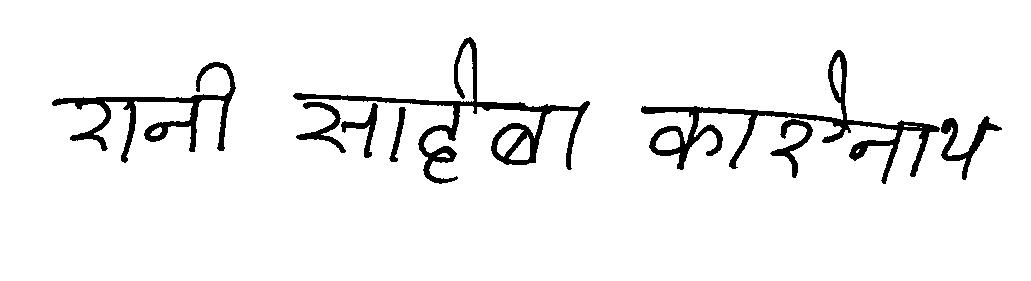 रानी साहेबा काशीनाथ